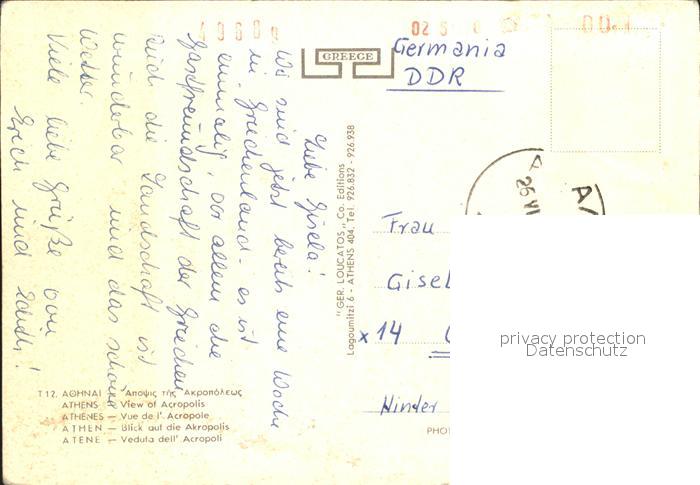 GREECE
Germania
DDR
Liebe Gisela!
Wir sind jetzt bereits eine Woche
in Griechenland - es ist
einmalig, vor allem die
Gastfreundschaft der Griechen
Auch die Landschaft ist
wunderbar und das schöne
Wetter.
Viele liebe Grüße von
Erich und Edith!
"GER. LOUCATOS„ Co. Editions
Lagoumitzi 6 - ATHENS 404, Tel. 926.832 - 926.938
Frau
Gisel
x 14
Hinder
26 VI
privacy protection
Datenschutz
T 12. ΑΘΗΝΑΙ — Ἄποψις τῆς Ἀκροπόλεως
ATHENS — View of Acropolis
ATHÈNES — Vue de l' Acropole
ATHEN — Blick auf die Akropolis
ATENE — Veduta dell' Acropoli
PHOT